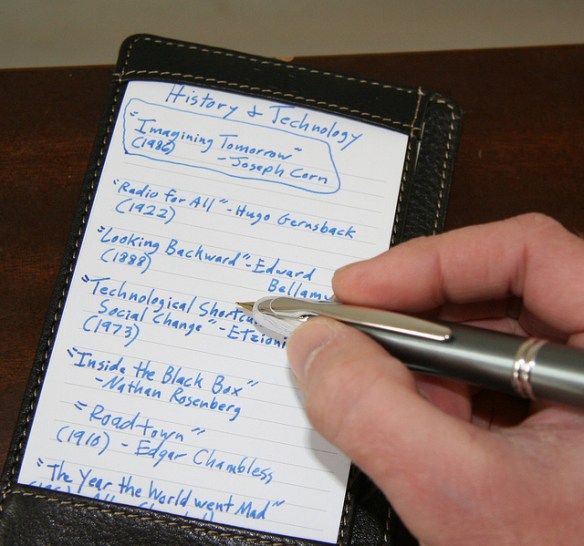 History & Technology
"Imagining Tomorrow"
(1986) - Joseph Corn
"Radio for All" - Hugo Gernsback
(1922)
"Looking Backward" - Edward
(1888) Bellamy
"Technological
Social Change" - Etzioni
(1973)
"Inside the Black Box"
- Nathan Rosenberg
"Roadtown"
(1910) - Edgar Chambless
"The Year the World went Mad"